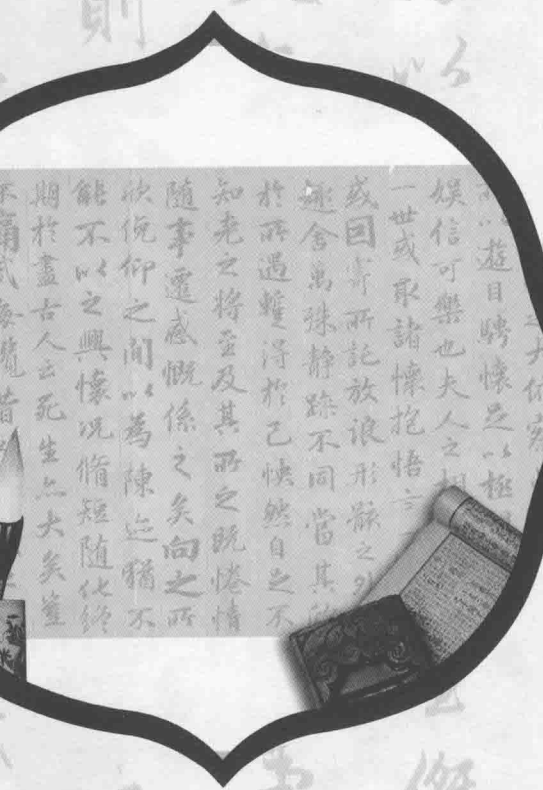 則
以
之大俯察
以遊目騁懷足以極
娛信可樂也夫人之相
一世或取諸懷抱悟言
或因寄所託放浪形骸之外
趣舍萬殊靜躁不同當其
於所遇蹔得於己怏然自足不
知老之將至及其所之既惓情
隨事遷感慨係之矣向之所
欣俛仰之間以為陳迹猶不
能不以之興懷況脩短隨化終
期於盡古人云死生亦大矣豈
不痛哉每攬昔